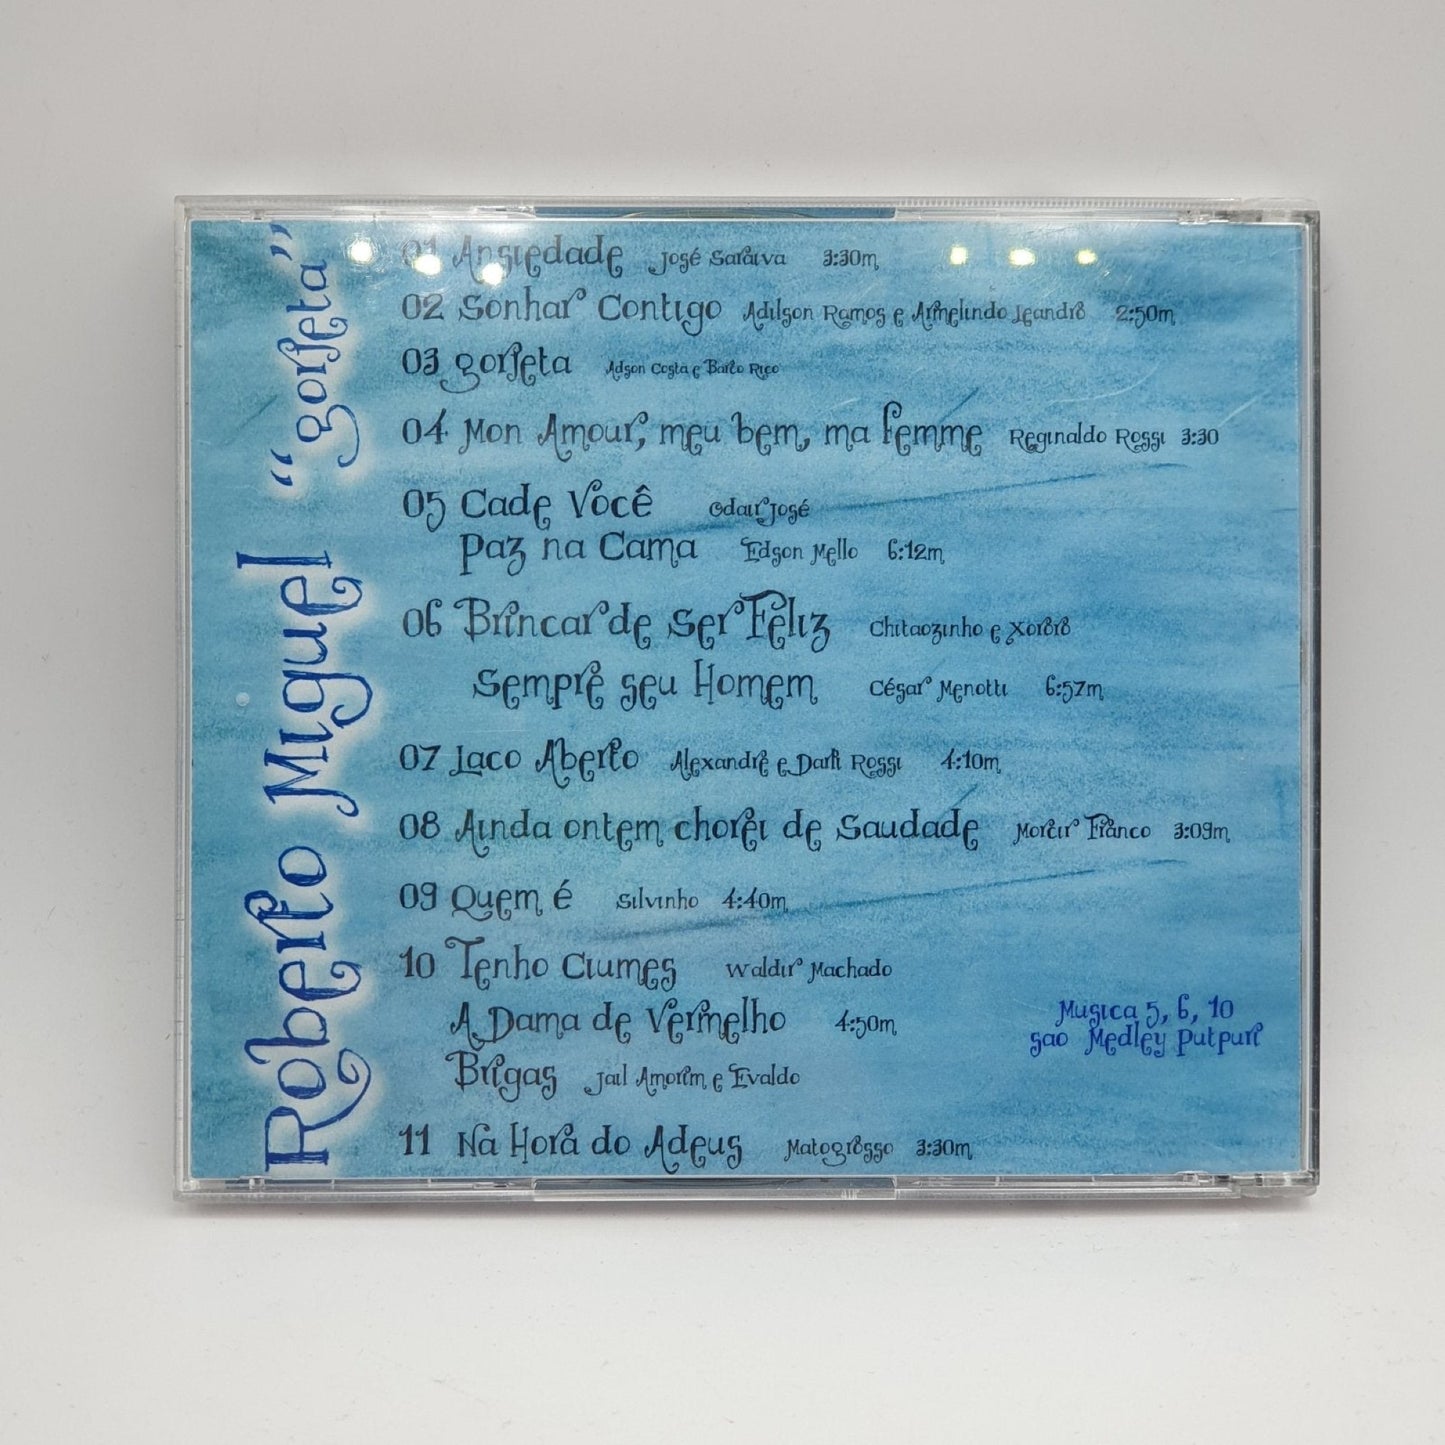 Roberto Miguel "gorjeta"
01 Ansiedade José Saraiva 3:30m
02 Sonhar Contigo Adilson Ramos e Armelindo Leandro 2:50m
03 gorjeta Adson Costa e Barto Rico
04 Mon Amour, meu bem, ma femme Reginaldo Rossi 3:30
05 Cade Você Odair José
Paz na Cama Edson Mello 6:12m
06 Brincar de Ser Feliz Chitaozinho e Xororo
Sempre seu Homem César Menotti 6:57m
07 Laco Aberto Alexandre e Darli Rossi 4:10m
08 Ainda ontem chorei de Saudade Morcir Franco 3:09m
09 Quem é Silvinho 4:40m
10 Tenho Ciumes Waldir Machado
A Dama de Vermelho 4:50m
Brigas Jail Amorim e Evaldo
Musica 5, 6, 10
sao Medley Putpuri
11 Na Hora do Adeus Matogrosso 3:30m